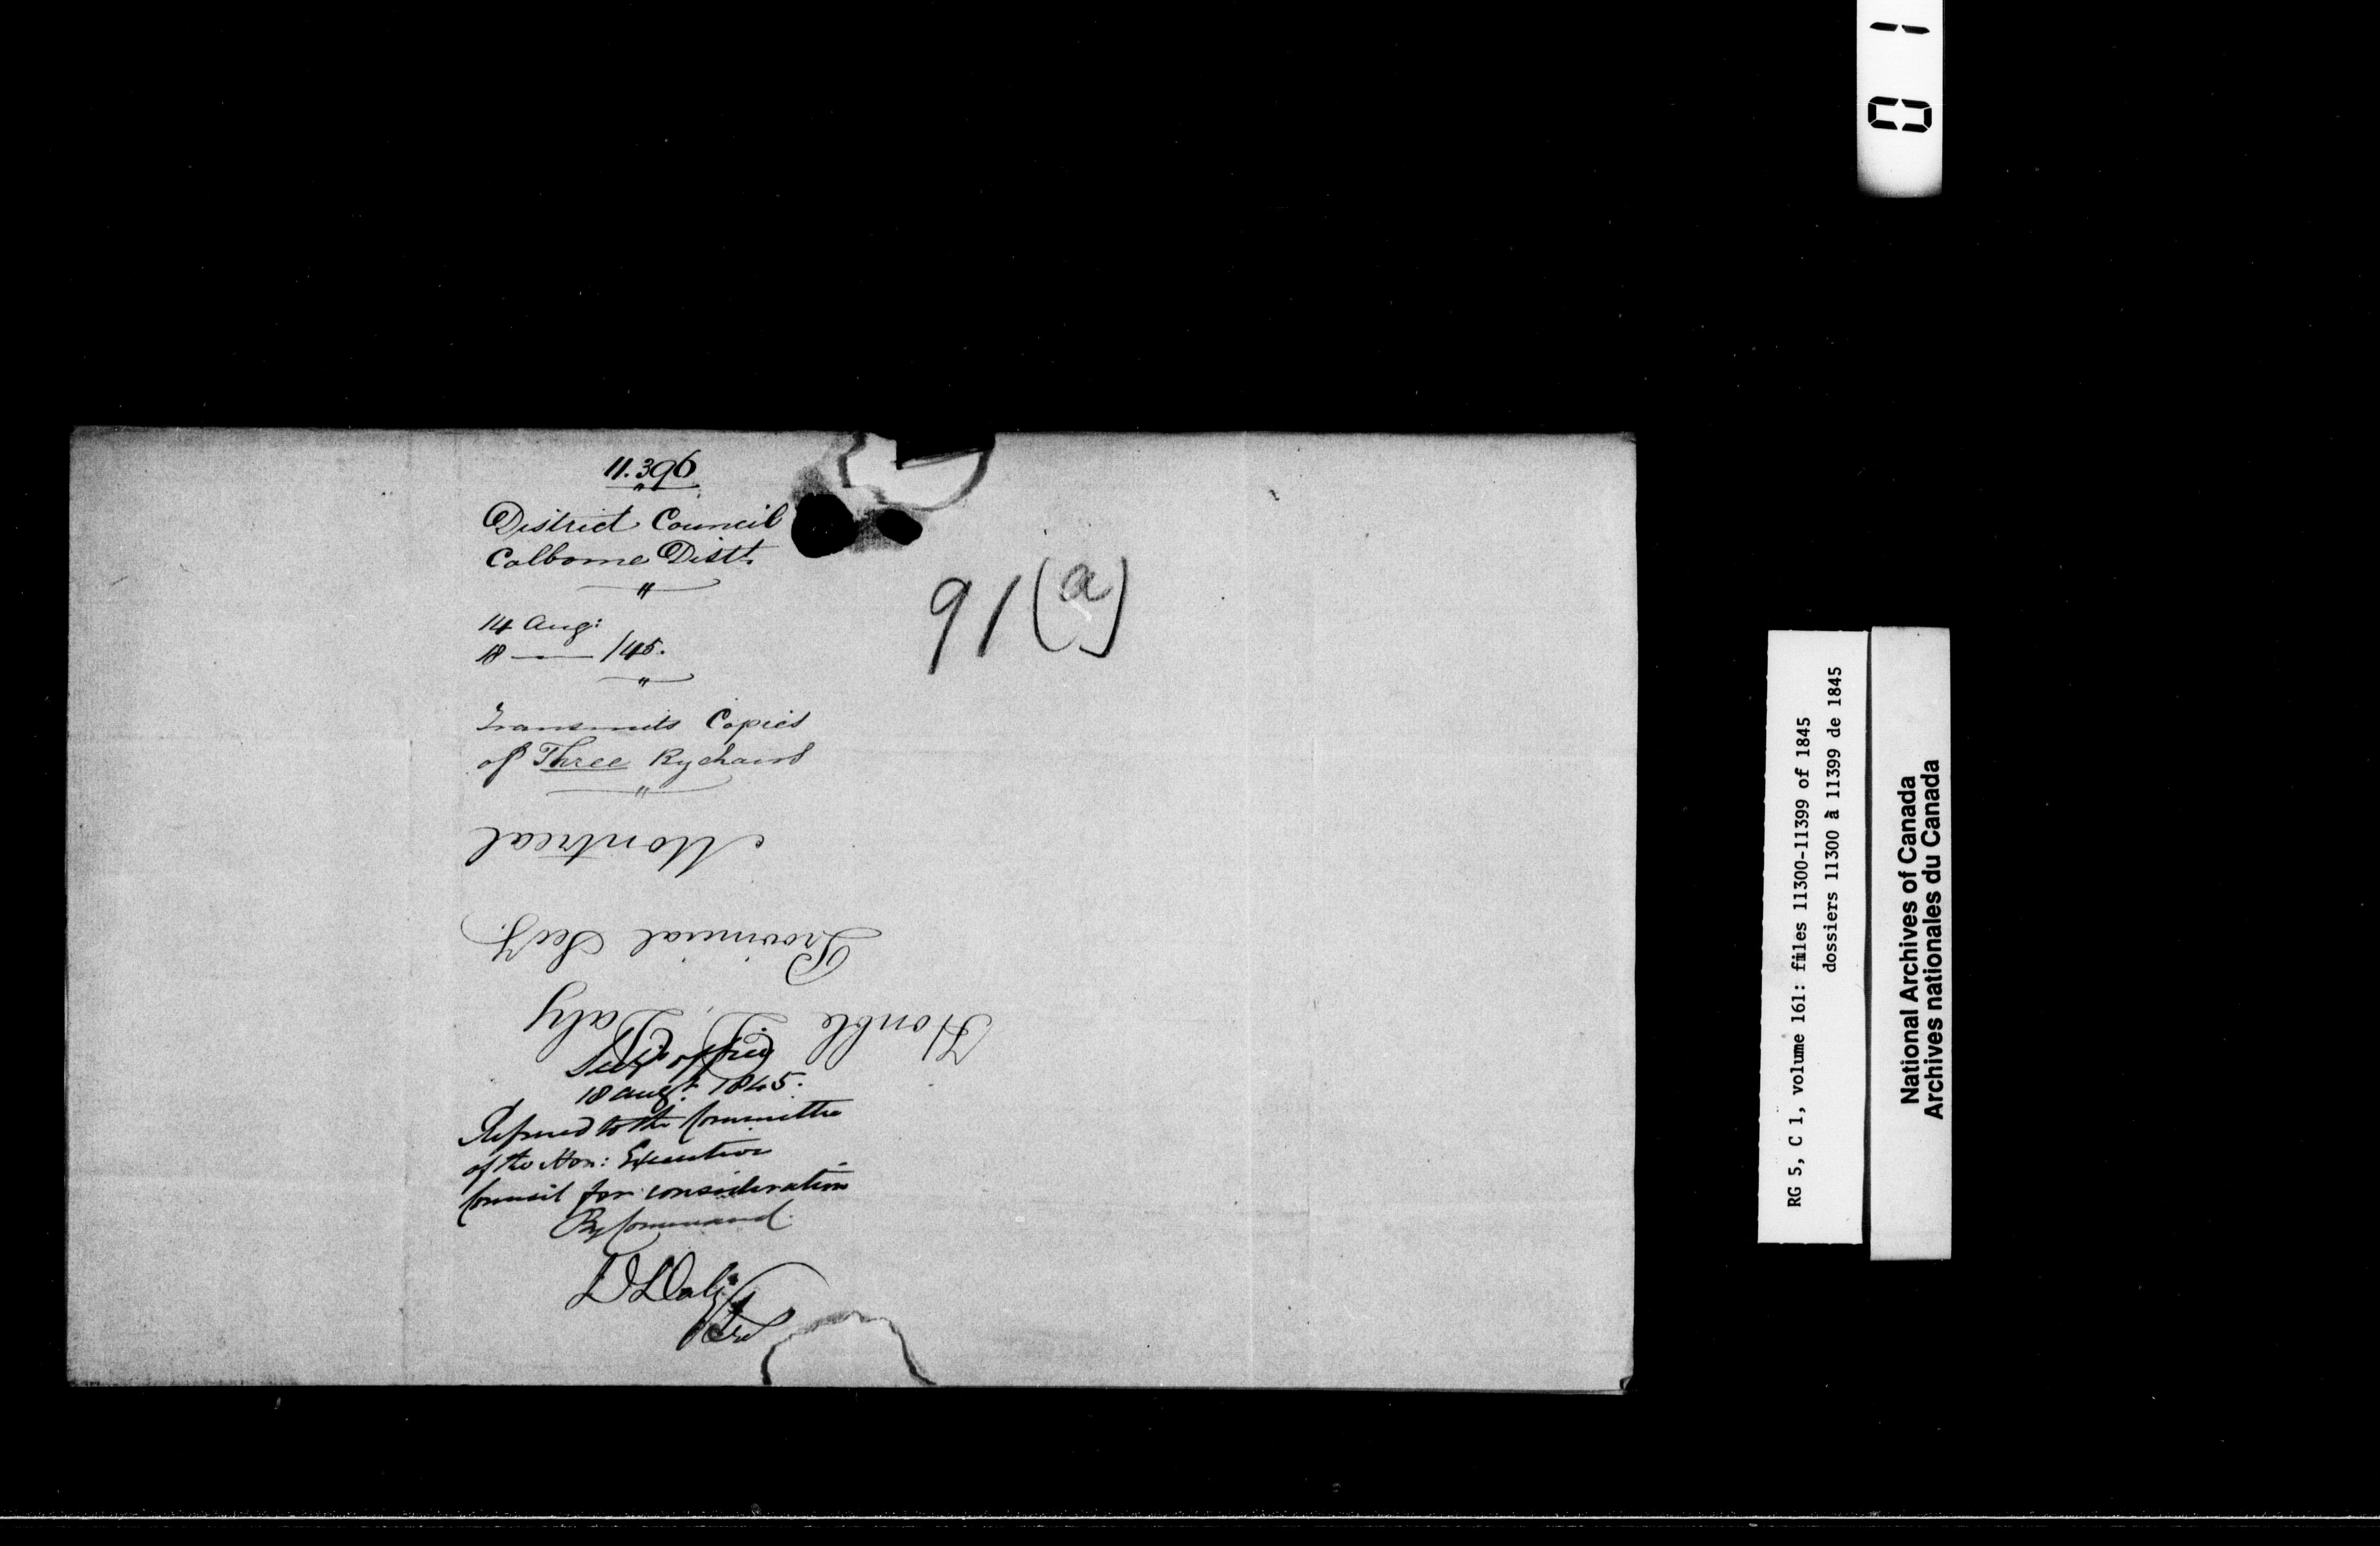 11.396
District Council
Colborne Distt.
14 Aug:
18 — /45.
Transmits Copies
of Three Bylaws
91(a)
Honble D. Daly
Provincial Secy.
Montreal
Secy's Office
18 Augt. 1845.
Referred to the Committee
of the Hon: Executive
Council for consideration
By Command
D Daly
Sec
RG 5, C 1, volume 161: files 11300-11399 of 1845
dossiers 11300 à 11399 de 1845
National Archives of Canada
Archives nationales du Canada